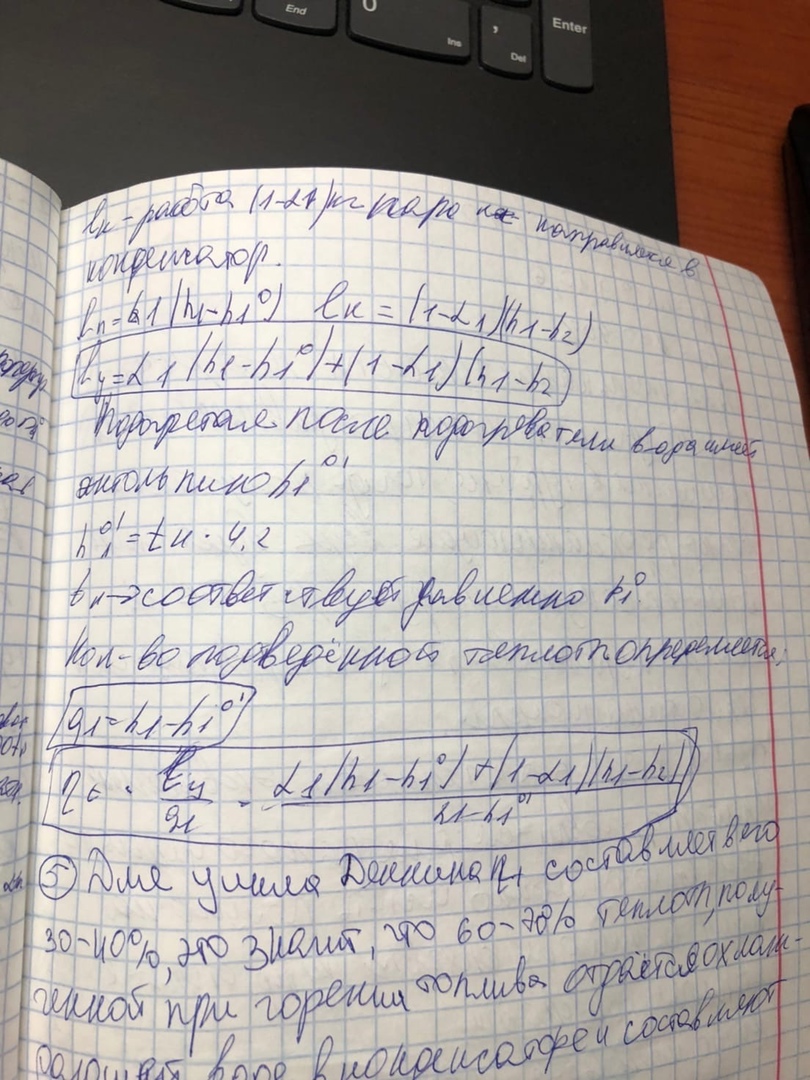 End
0
Ins
,
Del
Enter
lк - работа (1-α1) кг пара направился в
конденсатор.
lп = α1(h1-h1⁰) lк = (1-α1)(h1-h2)
lц = α1(h1-h1⁰)+(1-α1)(h1-h2
Подогретая после подогревателя вода имеет
энтольпию h1⁰'
h1⁰' = tн · 4,2
tн → соответствует давлению P1⁰
Кол-во подведённой теплоты определяется;
q1 = h1-h1⁰'
ηt = lц/q1 = α1(h1-h1⁰)+(1-α1)(h1-h2)/h1-h1⁰'
⑤ Для цикла ηt составляет всего
30-40%, это значит, что 60-70% теплоты, полу-
ченной при горении топлива отдаётся охлаж-
дающей воде в конденсаторе и составляют